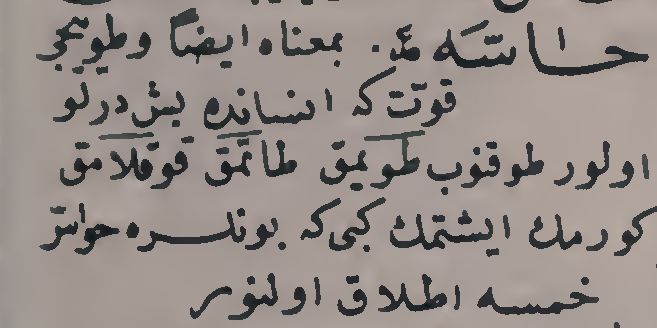 حاسّه مذ. بمعناه ايضاً وطويجى
قوّت كه انسانده بش درلو
اولور طوقنوب طويمق طاتمق قوقلامق
كورمك ايشتمك كبى كه بونلره حواسّ
خمسه اطلاق اولنور